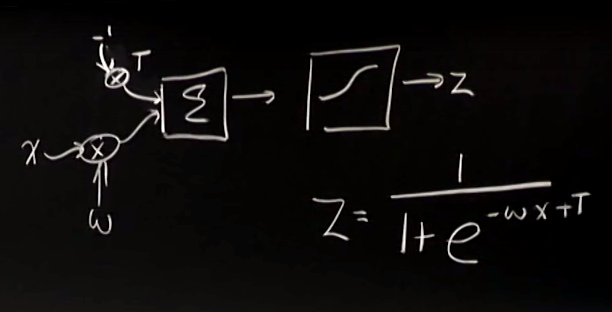 -1
T
Σ
→ Z
x
x
x
w
Z = 1 / (1 + e^(-wx+T))